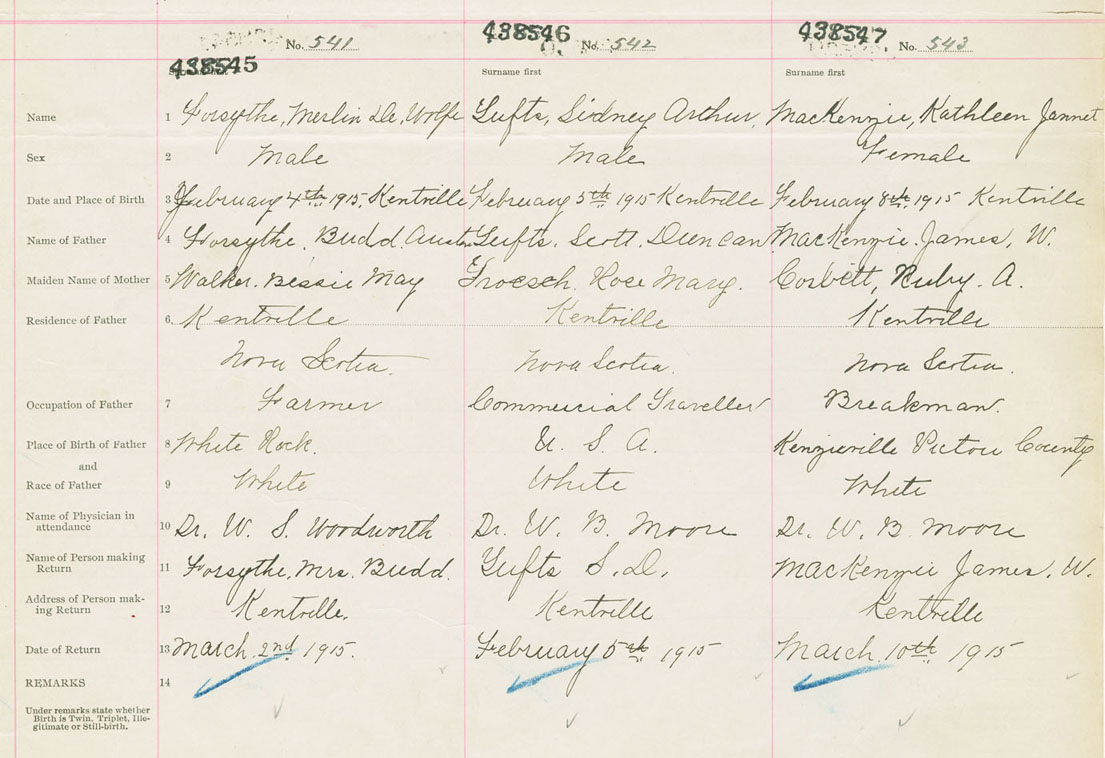 438545 No. 541 438546 No. 542 438547 No. 543
Surname first Surname first
Name 1 Forsythe, Merlin De, Wolfe Tufts, Sidney Arthur, MacKenzie, Kathleen Jannet
Sex 2 Male Male Female
Date and Place of Birth 3 February 4th 1915, Kentville February 5th 1915 Kentville February 8th 1915 Kentville
Name of Father 4 Forsythe, Budd. Austin Tufts. Scott. Duncan MacKenzie. James, W.
Maiden Name of Mother 5 Walker. Bessie May Troesch. Rose Mary. Corbett, Ruby. A.
Residence of Father 6 Kentville Kentville Kentville
Nova Scotia. Nova Scotia. Nova Scotia.
Occupation of Father 7 Farmer Commercial Traveller Breakman.
Place of Birth of Father 8 White Rock. U. S. A. Kenzieville Pictou County
and
Race of Father 9 White White White
Name of Physician in
attendance 10 Dr. W. S. Woodworth Dr. W. B. Moore Dr. W. B. Moore
Name of Person making
Return 11 Forsythe, Mrs. Budd. Tufts S. D. MacKenzie James. W.
Address of Person mak-
ing Return 12 Kentville. Kentville Kentville
Date of Return 13 March 2nd 1915. February 5th 1915 March 10th 1915
REMARKS 14
Under remarks state whether
Birth is Twin, Triplet, Ille-
gitimate or Still-birth.